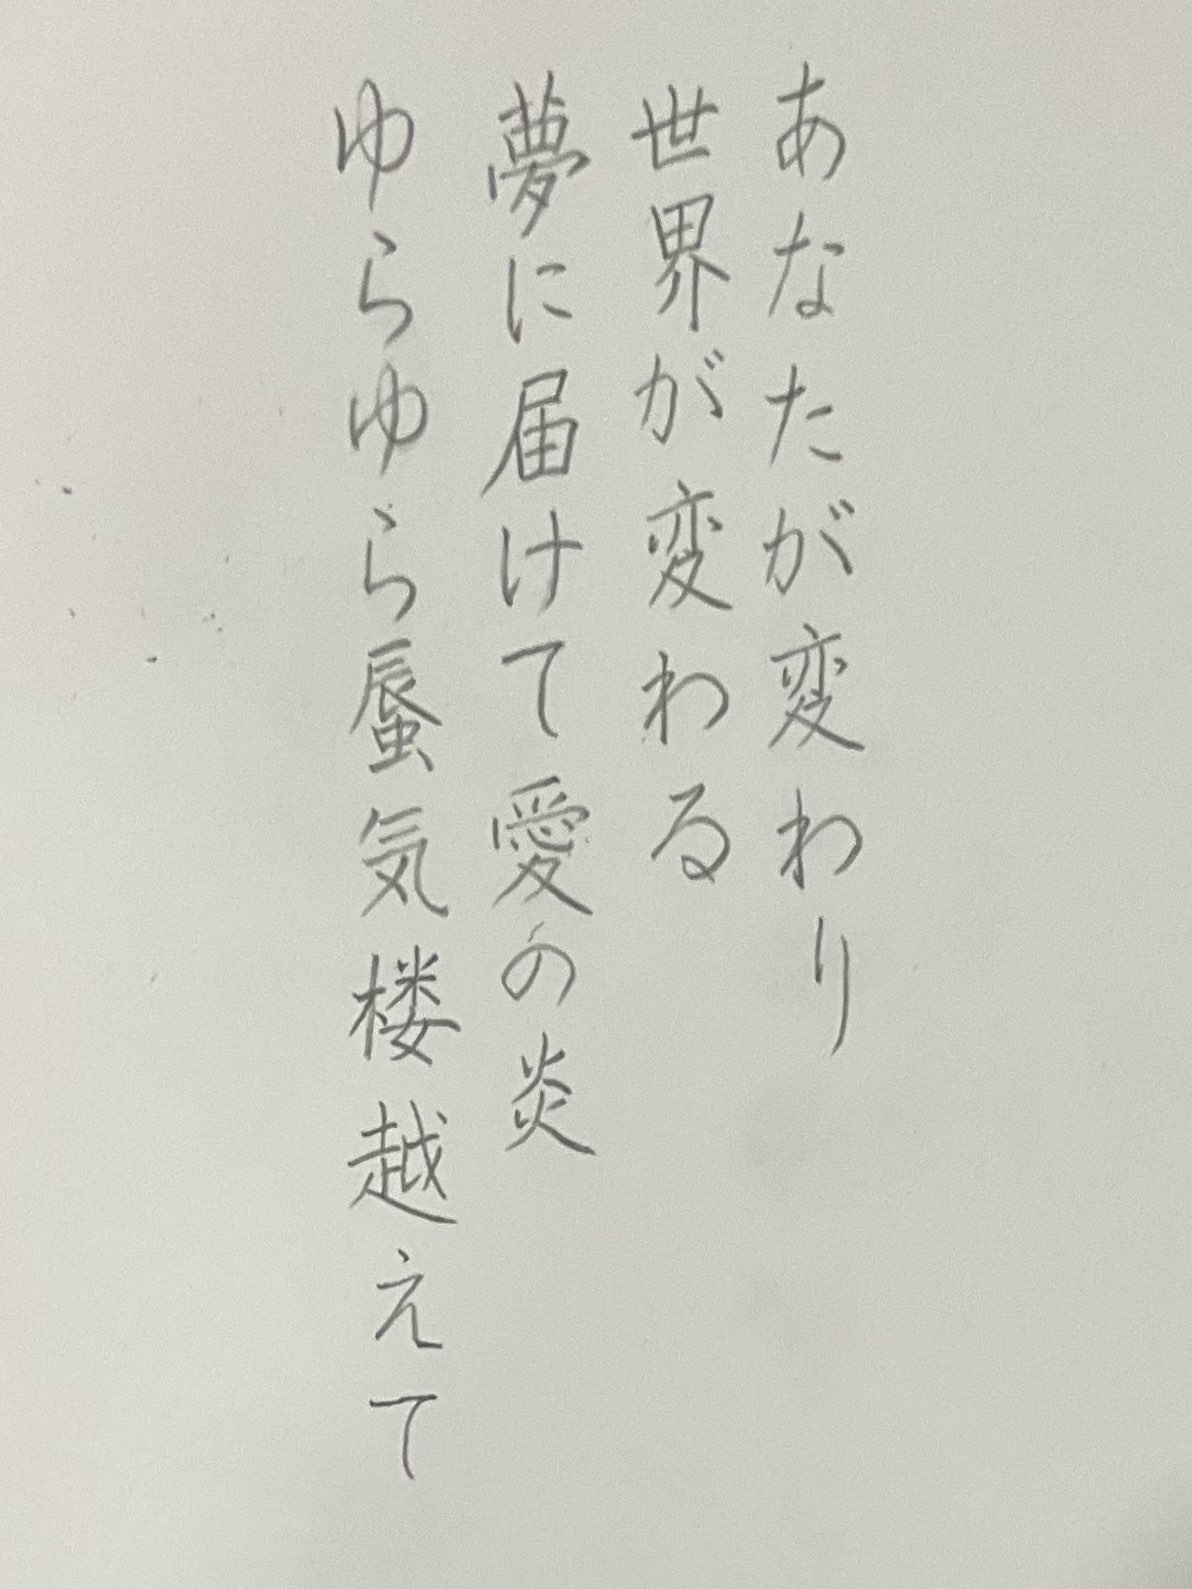 あなたが変わり
世界が変わる
夢に届けて愛の炎
ゆらゆら蜃気楼越えて